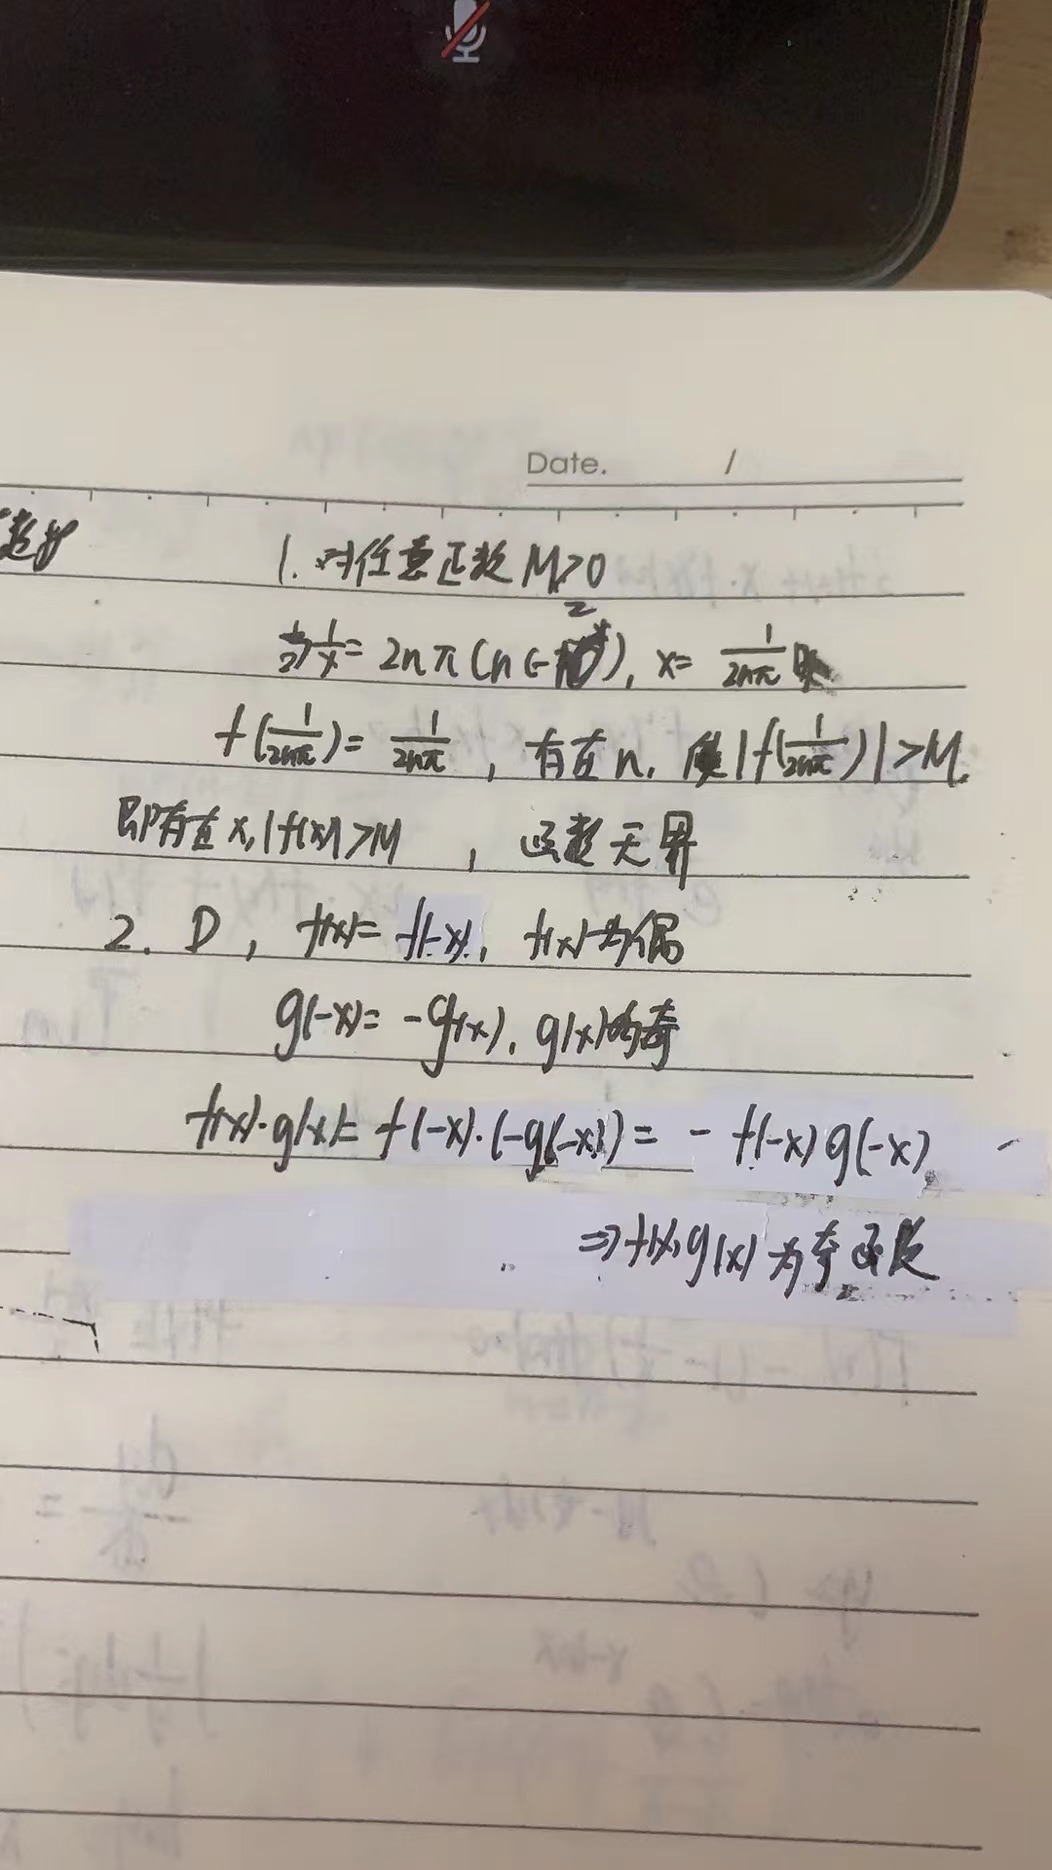 Date. /
1. 对任意正数 M>0
Z
1/x = 2nπ (n∈ ), x = 1/2nπ
f(1/2nπ) = 1/2nπ, 存在 n, 使 |f(1/2nπ)| > M.
即存在 x, |f(x)| > M , 函数无界
2. D, f(x) = f(-x), f(x) 为偶
g(-x) = -g(x), g(x) 为奇
f(x)·g(x) = f(-x)·(-g(-x)) = - f(-x) g(-x)
⇒ f(x), g(x) 为奇函数